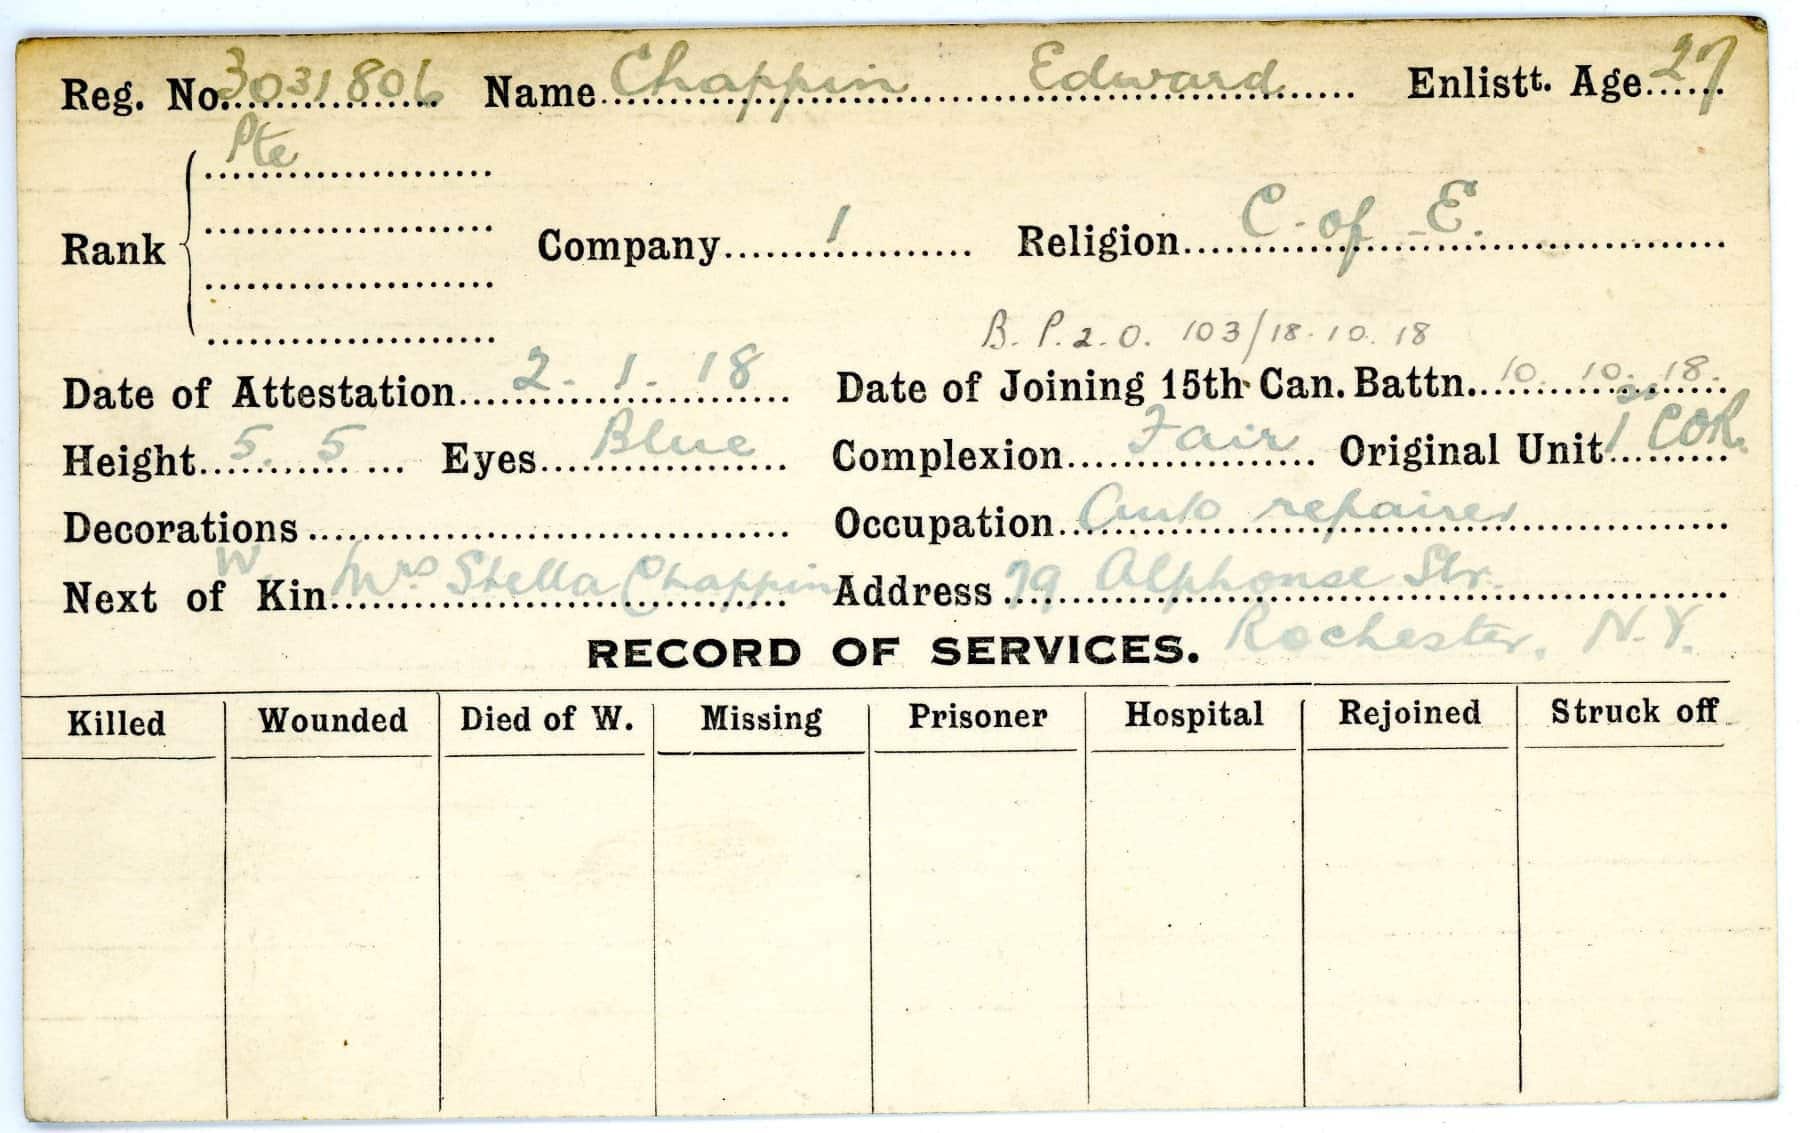 Reg. No. 3031806 Name Chappin Edward Enlistt. Age 27
Pte
Rank Company 1 Religion C. of E.
B. P. 2. O. 103/18.10.18
Date of Attestation 2. 1. 18 Date of Joining 15th Can. Battn. 10. 10. 18.
Height 5. 5 Eyes Blue Complexion Fair Original Unit 1st COR.
Decorations Occupation Auto repairer
W.
Next of Kin Mrs Stella Chappin Address 79 Alphonse Str.
Rochester, N.Y.
RECORD OF SERVICES.
Killed Wounded Died of W. Missing Prisoner Hospital Rejoined Struck off